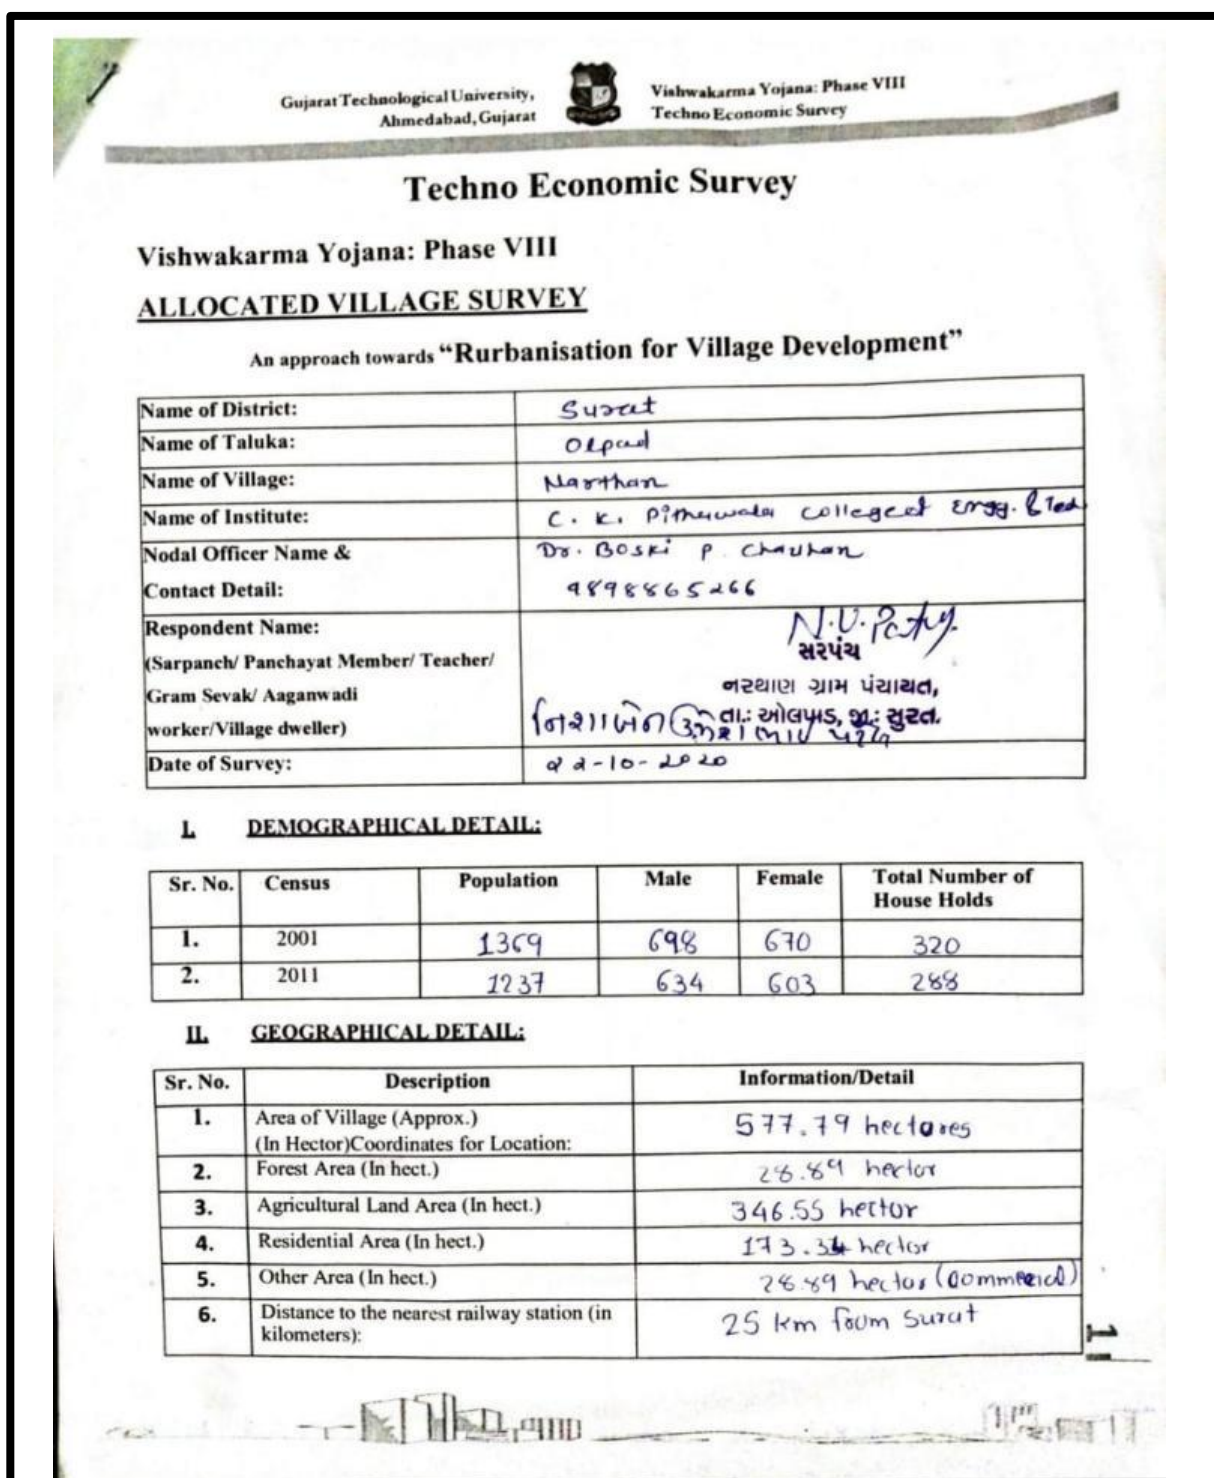 Gujarat Technological University,
Ahmedabad, Gujarat
Vishwakarma Yojana: Phase VIII
Techno Economic Survey
Techno Economic Survey
Vishwakarma Yojana: Phase VIII
ALLOCATED VILLAGE SURVEY
An approach towards “Rurbanisation for Village Development”
Name of District: Surat
Name of Taluka: Olpad
Name of Village: Narthan
Name of Institute: C. K. Pithawala college of Engg. & Tech
Nodal Officer Name & Dr. Boski P. Chauhan
Contact Detail: 9898865266
Respondent Name: N.V.
(Sarpanch/ Panchayat Member/ Teacher/ સરપંચ
Gram Sevak/ Aaganwadi નરથાણ ગ્રામ પંચાયત,
worker/Village dweller) નિશાબેન તા.: ઓલપાડ, જી.: સુરત.
Date of Survey: 22-10-2020
I. DEMOGRAPHICAL DETAIL:
Sr. No. Census Population Male Female Total Number of
House Holds
1. 2001 1369 698 670 320
2. 2011 1237 634 603 288
II. GEOGRAPHICAL DETAIL:
Sr. No. Description Information/Detail
1. Area of Village (Approx.) 577.79 hectares
(In Hector)Coordinates for Location:
2. Forest Area (In hect.) 28.89 hector
3. Agricultural Land Area (In hect.) 346.55 hector
4. Residential Area (In hect.) 173.34 hector
5. Other Area (In hect.) 28.89 hector (Commercial)
6. Distance to the nearest railway station (in 25 km from Surat
kilometers):